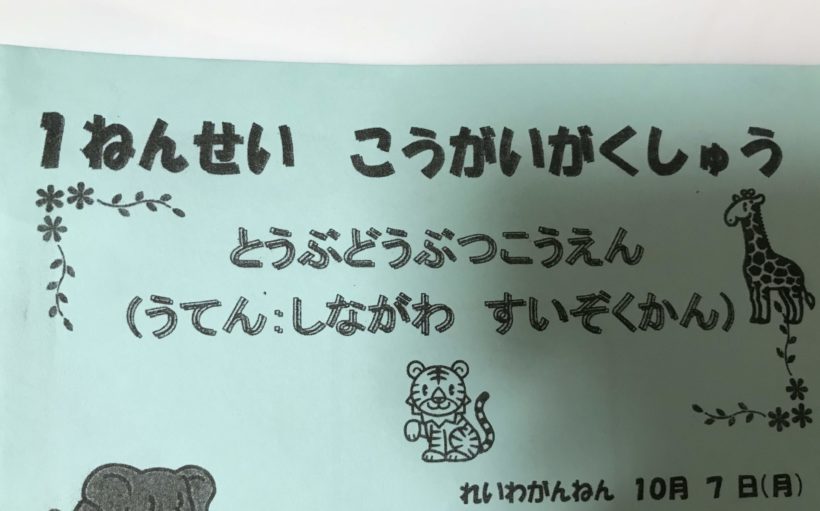 1ねんせい こうがいがくしゅう
とうぶどうぶつこうえん
(うてん:しながわ すいぞくかん)
れいわがんねん 10月 7 日(月)